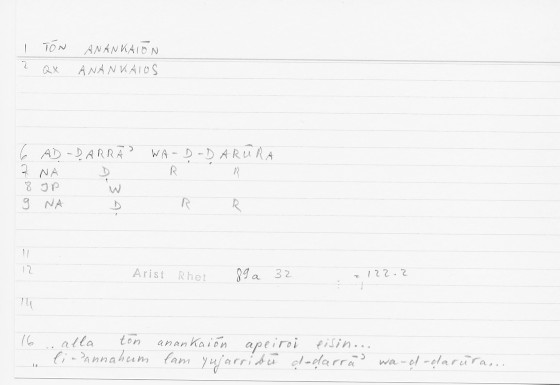 1 TŌN ANANKAIŌN
2 QX ANANKAIOS
6 AḌ-ḌARRĀʾ WA-Ḍ-ḌARŪRA
7 NA Ḍ R R
8 JP W
9 NA Ḍ R R
11
12 Arist Rhet 89a 32 = 122.2
14
16 „alla tōn anankaiōn apeiroi eisin...
„li-ʾannahum lam yujarribū ḍ-ḍarrāʾ wa-ḍ-ḍarūra...